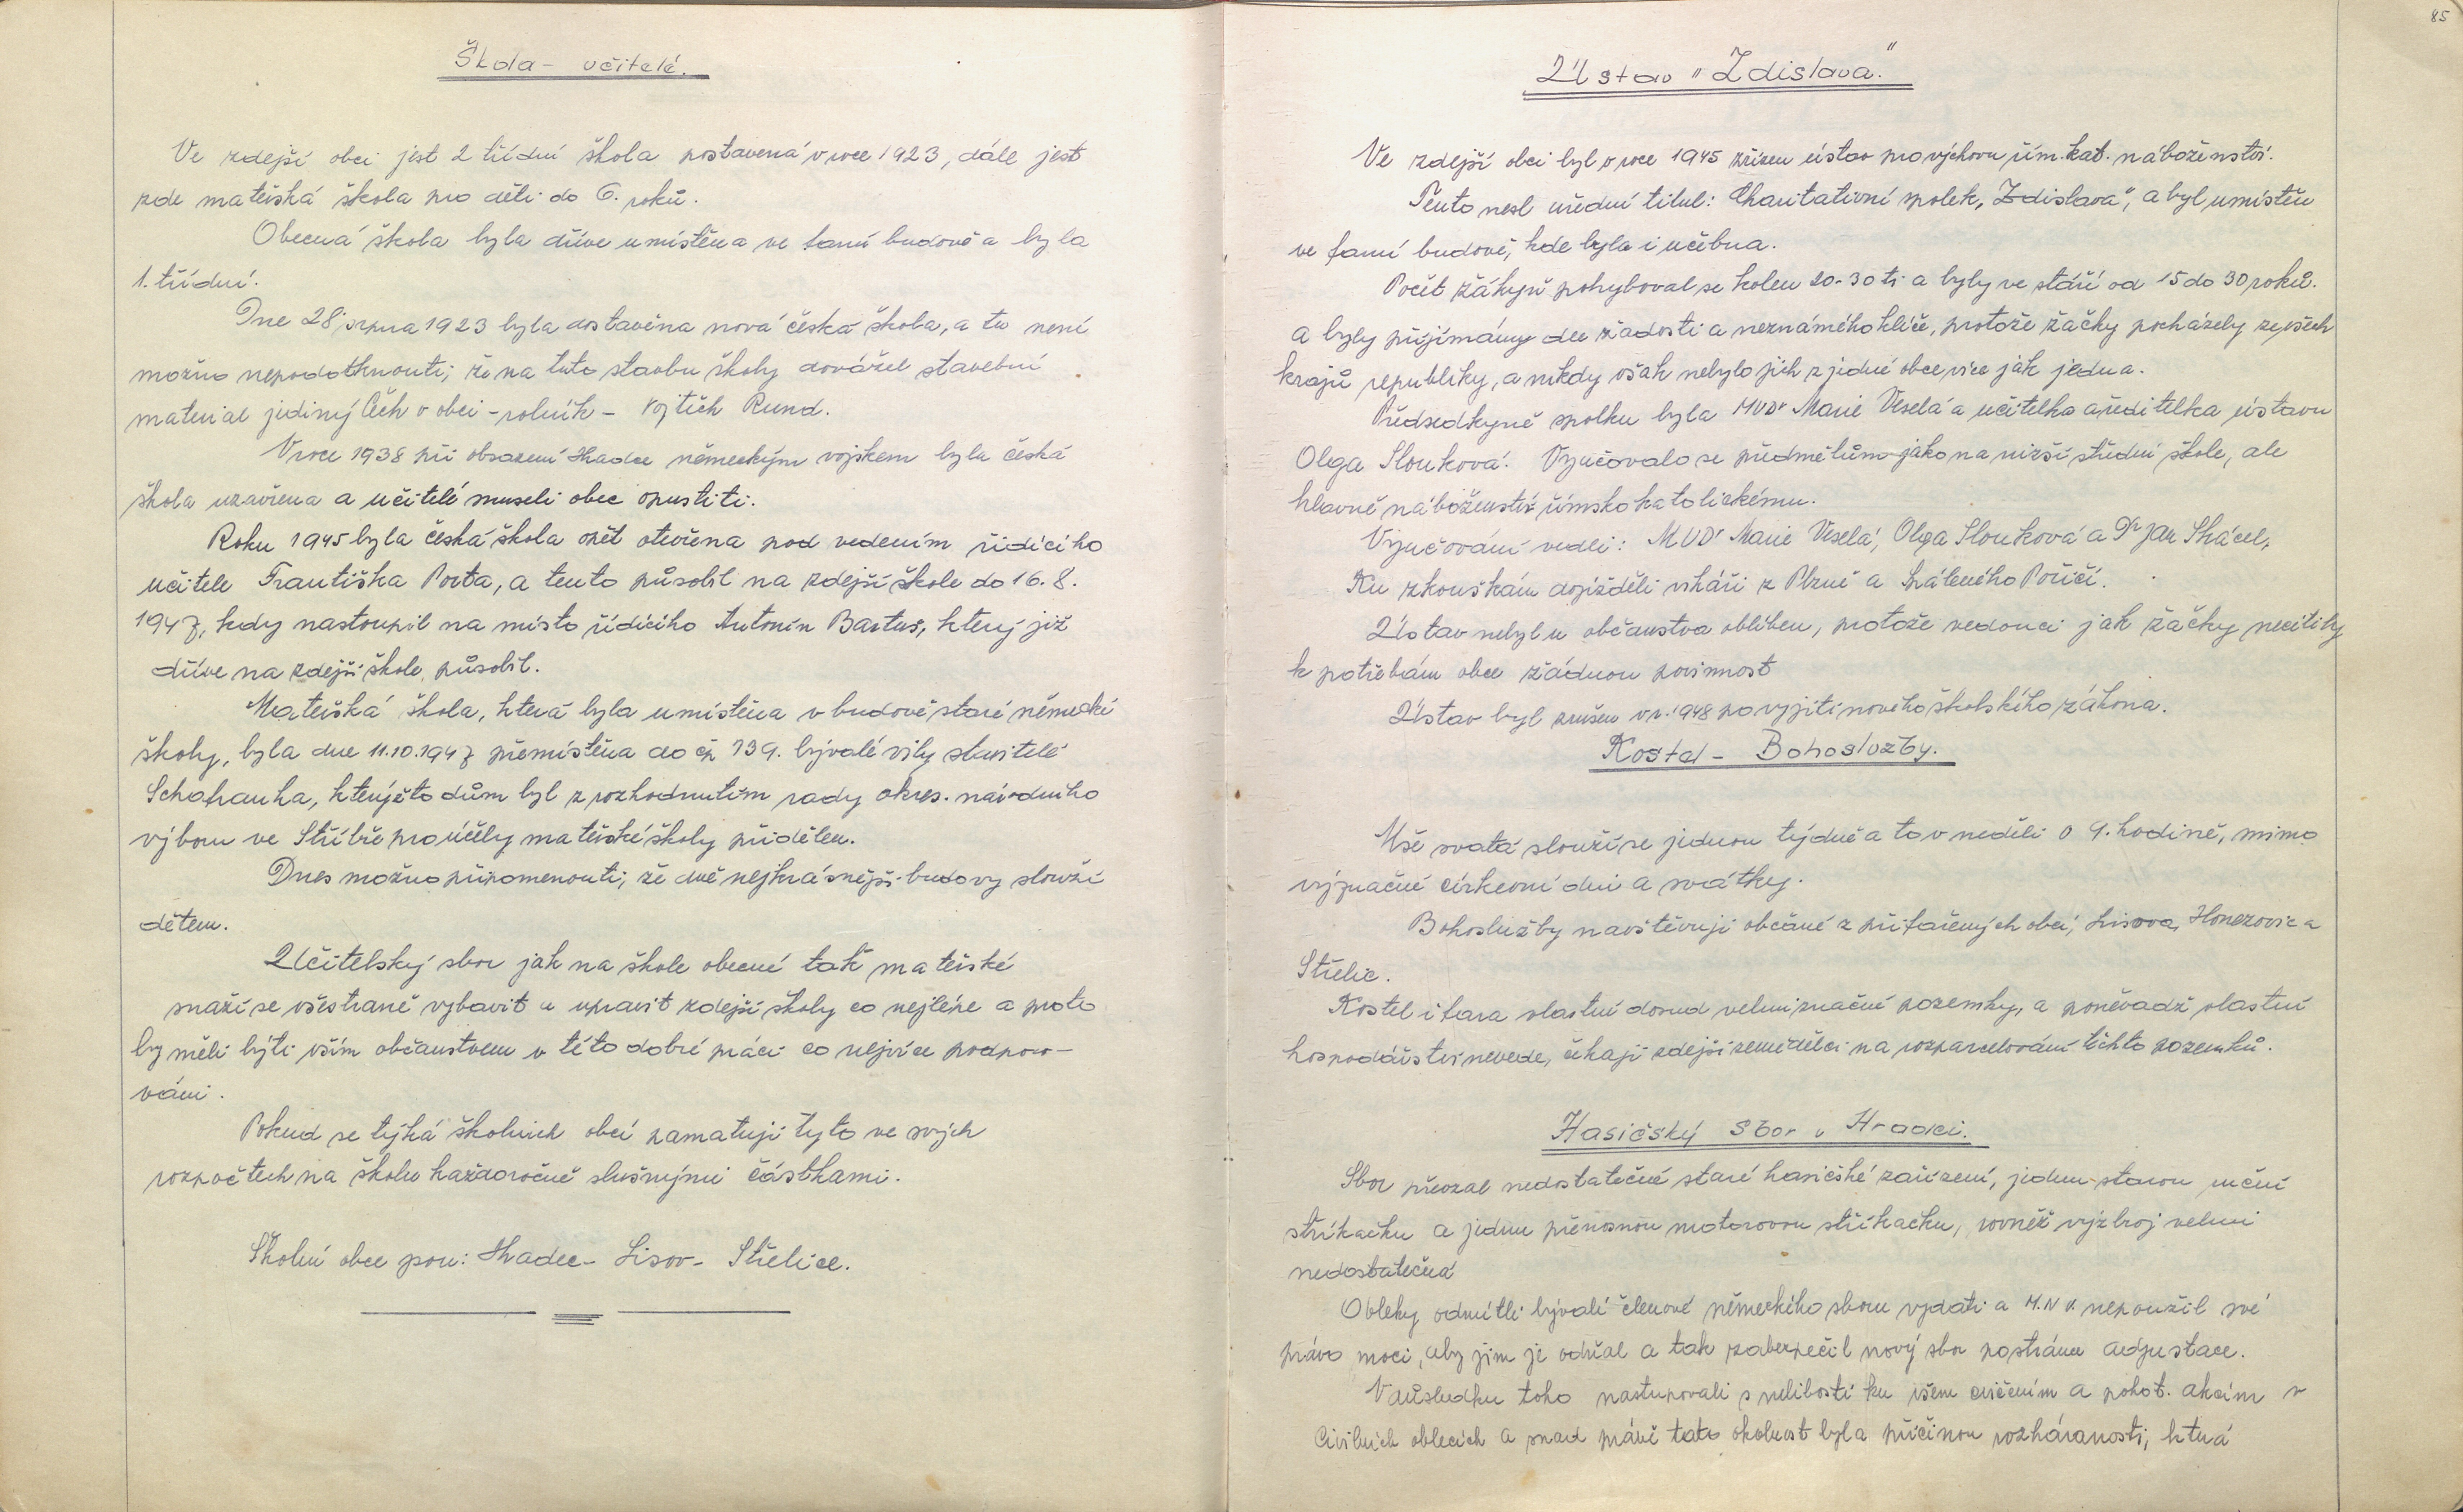 Škola - učitelé.
Ve zdejší obci jest 2 třídní škola postavená v roce 1923, dále jest
zde mateřská škola pro děti do 6. roků.
Obecná škola byla dříve umístěna ve farní budově a byla
1. třídní.
Dne 28. srpna 1923 byla dostavěna nová česká škola, a tu není
možno nepodotknouti, že na tuto stavbu školy dovážel stavební
material jediný Čech v obci - rolník - Vojtěch Rund.
V roce 1938 při obsazení Hradce německým vojskem byla česká
škola uzavřena a učitelé museli obec opustiti.
Roku 1945 byla česká škola opět otevřena pod vedením řídícího
učitele Františka Porta, a tento působil na zdejší škole do 16. 8.
1947, kdy nastoupil na místo řídícího Antonín Bartuš, který již
dříve na zdejší škole působil.
Mateřská škola, která byla umístěna v budově staré německé
školy, byla dne 11.10.1947 přemístěna do čp 139. bývalé vily stavitele
Schafranka, kterýžto dům byl z rozhodnutím rady okres. národního
výboru ve Stříbře pro účely mateřské školy přidělen.
Dnes možno připomenouti, že dvě nejkrásnější budovy slouží
dětem.
Učitelský sbor jak na škole obecné tak mateřské
snaží se všestraně vybavit a upravit zdejší školy co nejlépe a proto
by měli býti vším občanstvem v této dobré práci co nejvíce podporo-
váni.
Pokud se týká školních obcí pamatují tyto ve svých
rozpočtech na školu každoročně slušnými částkami.
Školní obce jsou: Hradec - Lisov - Střelice.
85
Ústav "Zdislava"
Ve zdejší obci byl v roce 1945 zřízen ústav pro výchovu řím. kat. náboženství.
Tento nesl úřední titul: Charitativní spolek, Zdislava", a byl umístěn
ve farní budově, kde byla i učebna.
Počet žákyň pohyboval se kolem 20-30 ti a byly ve stáří od 15 do 30 roků.
a byly přijímány dle žádosti a neznámého klíče, protože žačky pocházely ze všech
krajů republiky, a nikdy však nebylo jich z jedné obce více jak jedna.
Předsedkyně spolku byla MUDr Marie Veselá a učitelka a ředitelka ústavu
Olga Slouková. Vyučovalo se předmětům jako na nižší střední škole, ale
hlavně náboženství římskokatolickému.
Vyučování vedli: MUDr Marie Veselá, Olga Slouková a Dr Jan Skácel,
Ku zkouškám dojížděli vikáři z Plzně a Spáleného Poříčí.
Ústav nebyl u občanstva oblíben, protože vedoucí jak žačky necítily
k potřebám obce žádnou povinnost
Ústav byl zrušen v r. 1948 po vyjití nového školského zákona.
Kostel - Bohoslužby.
Mše svatá slouží se jednou týdně a to v neděli o 9. hodině, mimo
význačné církevní dni a svátky.
Bohoslužby navštěvují občané z přifařených obcí, Lisova, Honezovic a
Střelic.
Kostel i fara vlastní dosud velmi značné pozemky, a poněvadž vlastní
hospodářství nevede, čekají zdejší zemědělci na rozparcelování těchto pozemků.
Hasičský sbor v Hradci.
Sbor převzal nedostatečné staré hasičské zařízení, jednu starou ruční
stříkačku a jednu přenosnou motorovou stříkačku, rovněž výzbroj velmi
nedostatečná
Obleky odmítli bývalí členové německého sboru vydati a M.N.V. nepoužil své
právo moci, aby jim je odňal a tak zabezpečil nový sbor po stránce adjustace.
V důsledku toho nastupovali s nelibostí ku všem cvičením a pohot. akcím v
civilních oblecích a snad právě tato okolnost byla příčinou rozháranosti, která